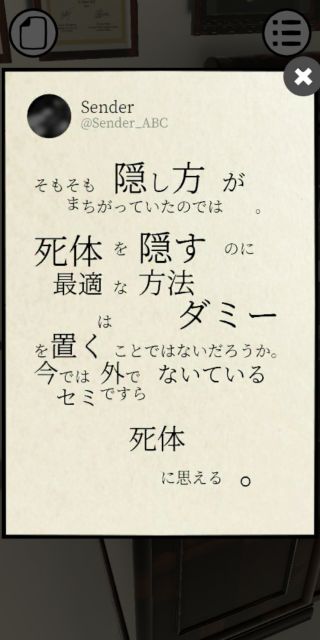 Sender
@Sender_ABC
そもそも 隠し方 が
まちがっていたのでは 。
死体 を 隠す のに
最適 な 方法
は ダミー
を置く ことではないだろうか。
今では 外で ないている
セミですら
死体
に思える 。